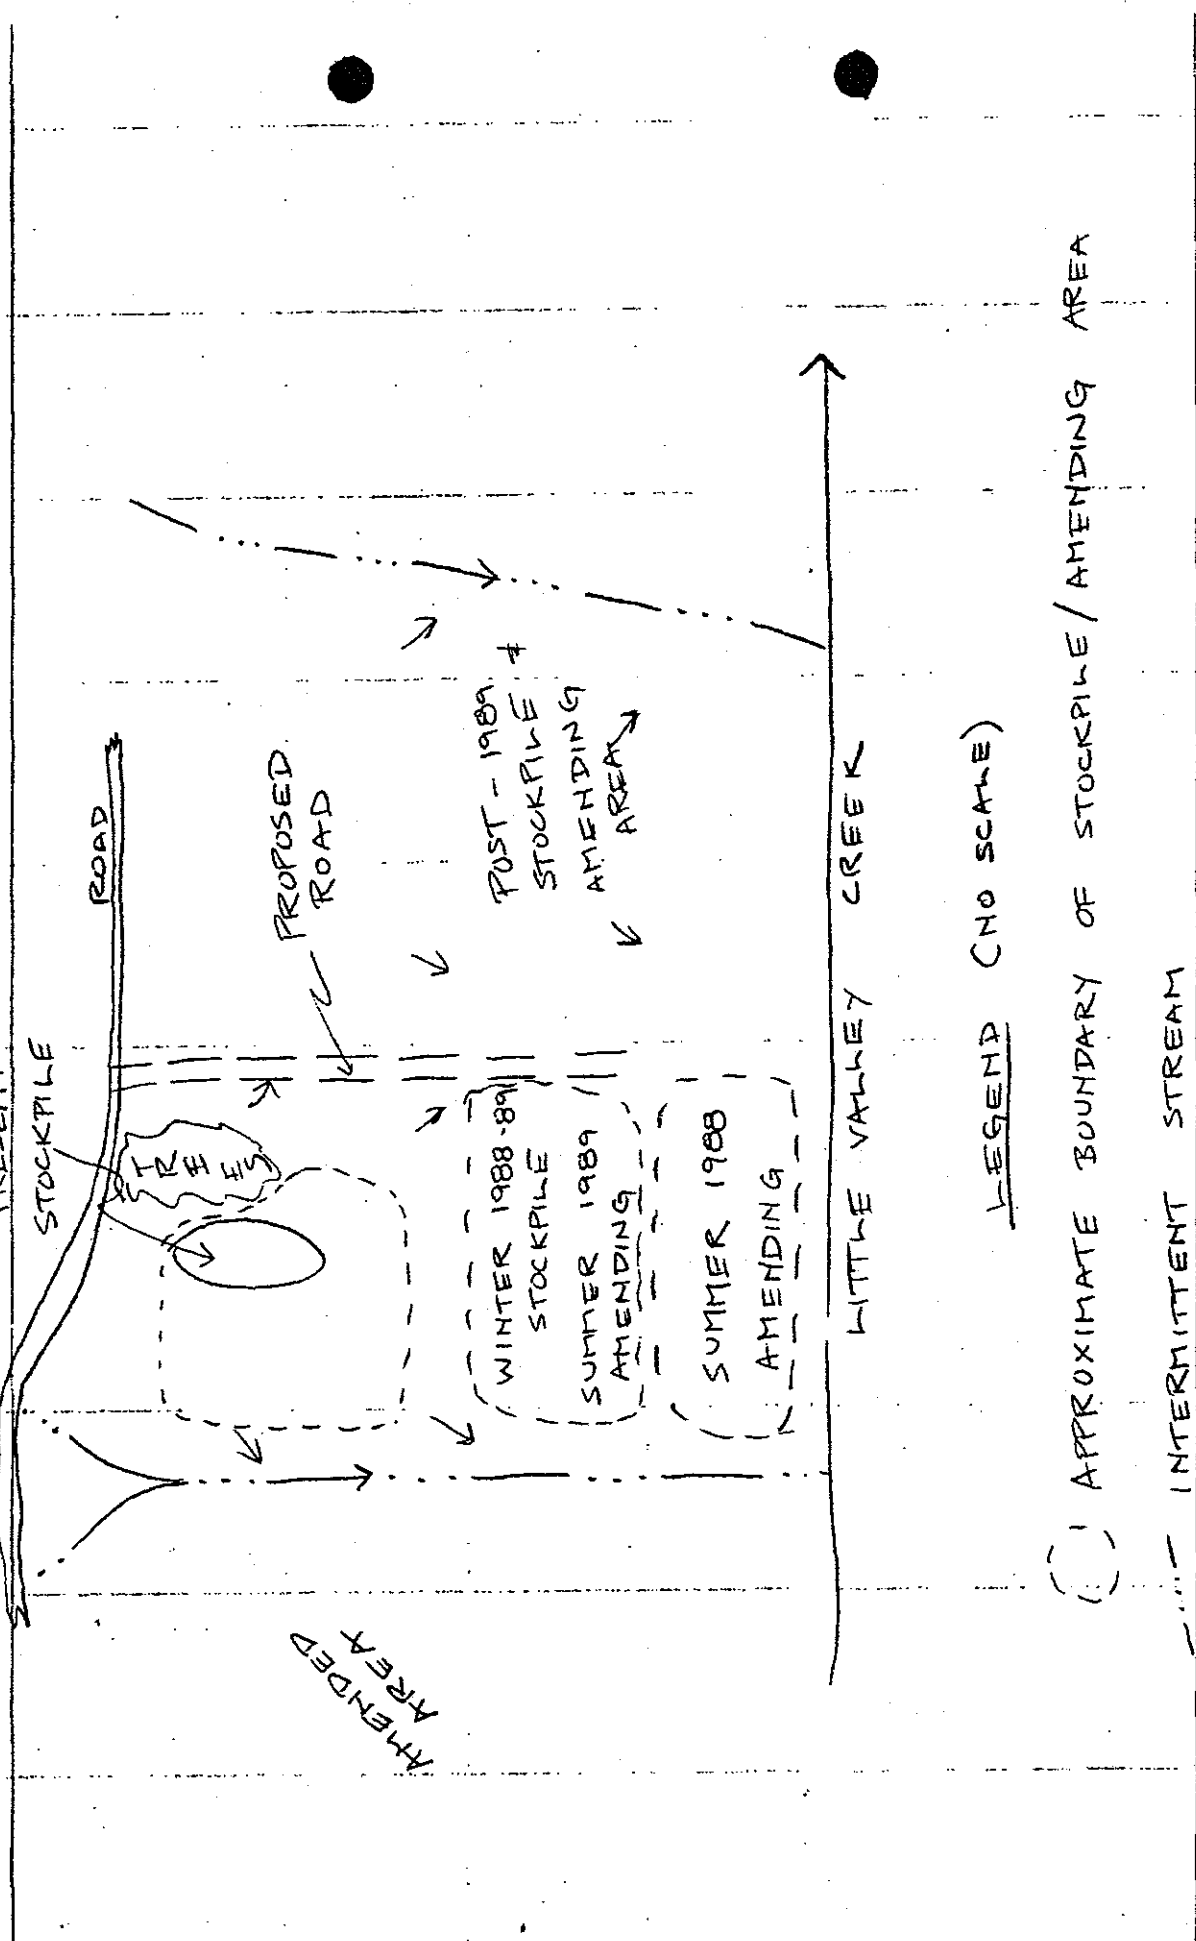 STOCKPILE
ROAD
TREES
PROPOSED
ROAD
WINTER 1988-89
STOCKPILE
SUMMER 1989
AMENDING
SUMMER 1988
AMENDING
POST-1989
STOCKPILE &
AMENDING
AREA
AMENDED
AREA
LITTLE VALLEY CREEK
LEGEND (NO SCALE)
APPROXIMATE BOUNDARY OF STOCKPILE/AMENDING AREA
INTERMITTENT STREAM